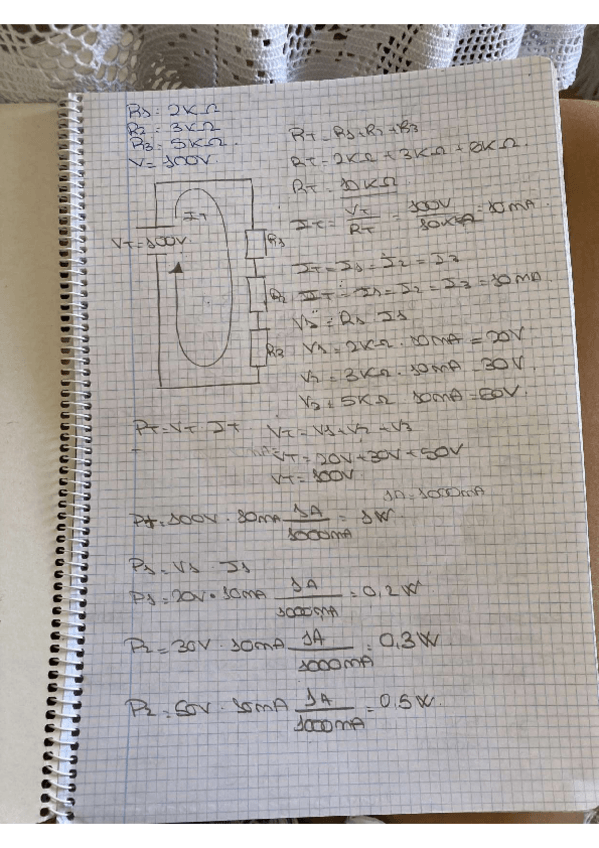 R1: 2KΩ
R2: 3KΩ
R3: 5KΩ.
V= 100V.
RT= R1+R2+R3
RT= 2KΩ + 3KΩ + 5KΩ.
RT= 10KΩ
IT= VT/RT = 100V/10KΩ = 10mA.
VT=100V
IT
R1
R2
R3
IT= I1 = I2 = I3
IT= I1 = I2 = I3 = 10mA.
V1= R1 · I1
V1= 2KΩ · 10mA = 20V
V2= 3KΩ · 10mA = 30V.
V3= 5KΩ 10mA = 50V.
PT= VT · IT
VT= V1+V2+V3
VT= 20V+30V+50V
VT= 100V
1A=1000mA
PT= 100V · 10mA 1A/1000mA = 1W
P1= V1 · I1
P1= 20V · 10mA 1A/1000mA = 0,2W
P2= 30V · 10mA 1A/1000mA = 0,3W
P2= 50V · 10mA 1A/1000mA = 0,5W.